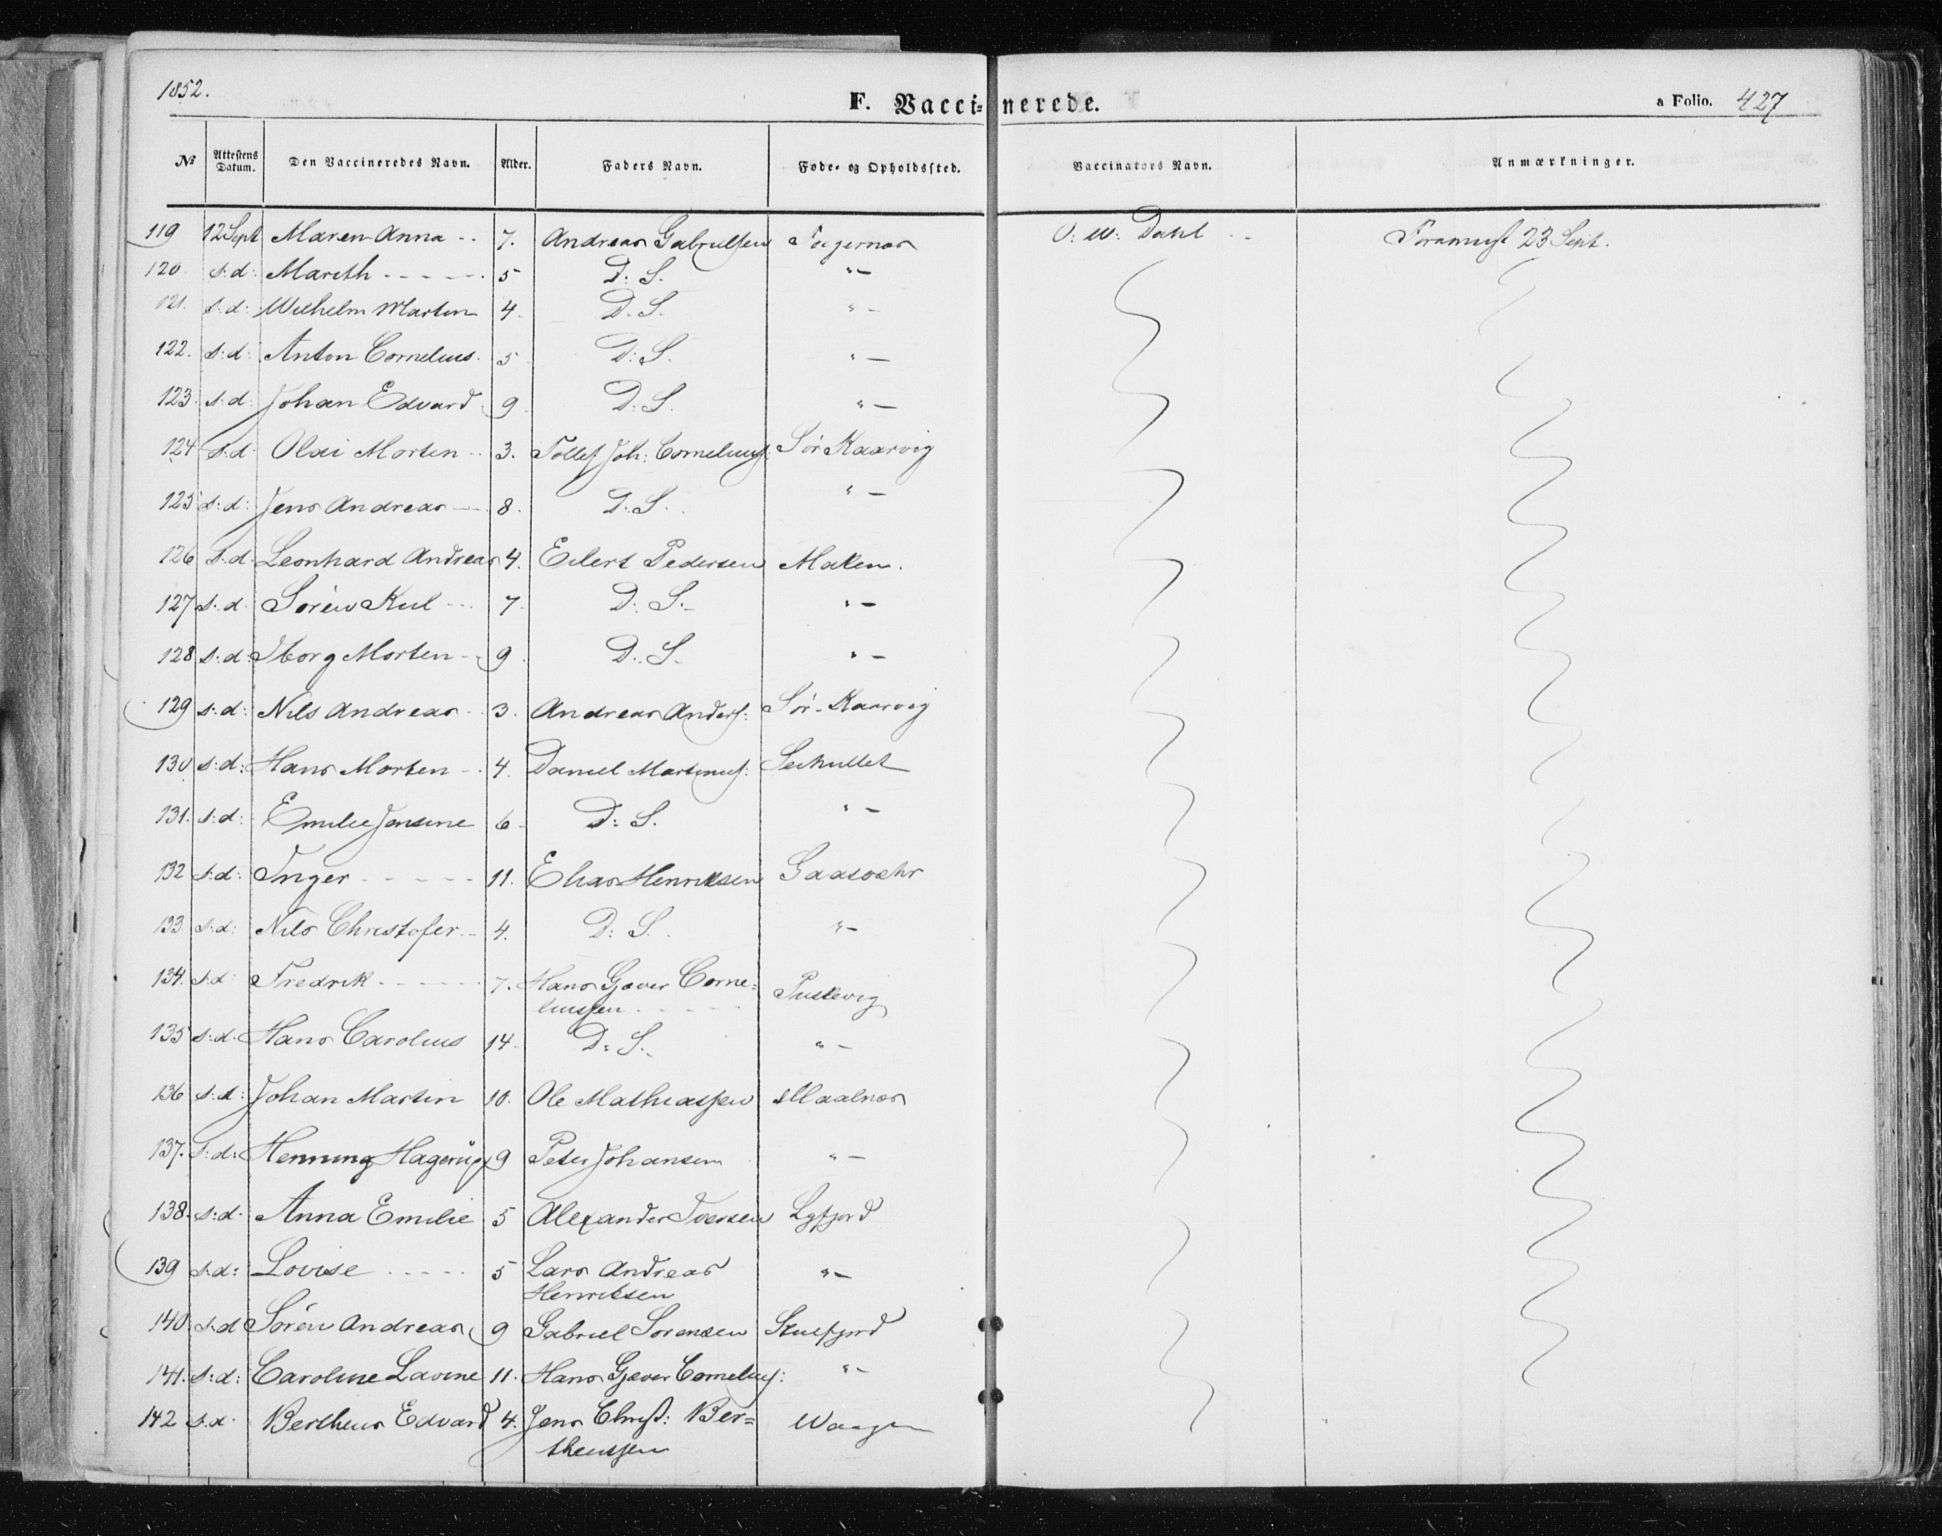 1852.
F. Vaccinerede.
a Folio. 427
No Attestens Datum. Den Vaccineredes Navn. Alder. Faders Navn. Føde- og Opholdssted. Vaccinators Navn. Anmærkninger.
119 12 Sept Maren Anna 7. Andreas Gabrielsen O: W: Dahl 23 Sept.
120 s: d: Mareth 5 D: S. " —
121. s: d: Wilhelm Martin 4 D. S. " —
122. s: d: Anton Cornelius 5 D: S. " —
123. s. d. Johan Edvard 9 D: S. " —
124 s. d. Olai Morten 3. Tollef Joh: Corneliuss: Sør Kaarvig
125 s: d: Jens Andreas 8. D. S. " —
126 s. d. Leonhard Andreas 4. Eilert Pedersen Maken.
127 s. d. Sören Kiil 7 D: S. " —
128 s. d. Morten 9 D. S. " —
129 s: d: Nils Andreas 3. Andreas Anders: Sør-Kaarvig
130 s: d: Hans Morten 4. Daniel Martinus:
131. s: d: Emilie Jensine 6 D: S. " —
132 s: d: Inger 11. Elias Henriksen Gaasvær
133 s: d: Nils Christofer 4. D: S. " —
134. s. d: Fredrik 7. Hans Gjæver Corne=
liussen
135 s: d. Hans Carolius 14 D: S. " —
136 s: d: Johan Martin 10. Ole Mathiassen Maalnes
137. s: d: Henning Hagerup 9 Peter Johansen " —
138. s: d. Anna Emilie 5 Alexander Iversen Lyfjord
139 s: d: Lovise 5 Lars Andreas " —
Henriksen
140. s. d Sören Andreas 9 Gabriel Sorensen Skulfjord
141. s: d: Caroline Lavine 11. Hans Gjæver Corneliuss: " —
142 s. d. Bertheus Edvard 4. Jens Christ: Ber=
theussen Waagen